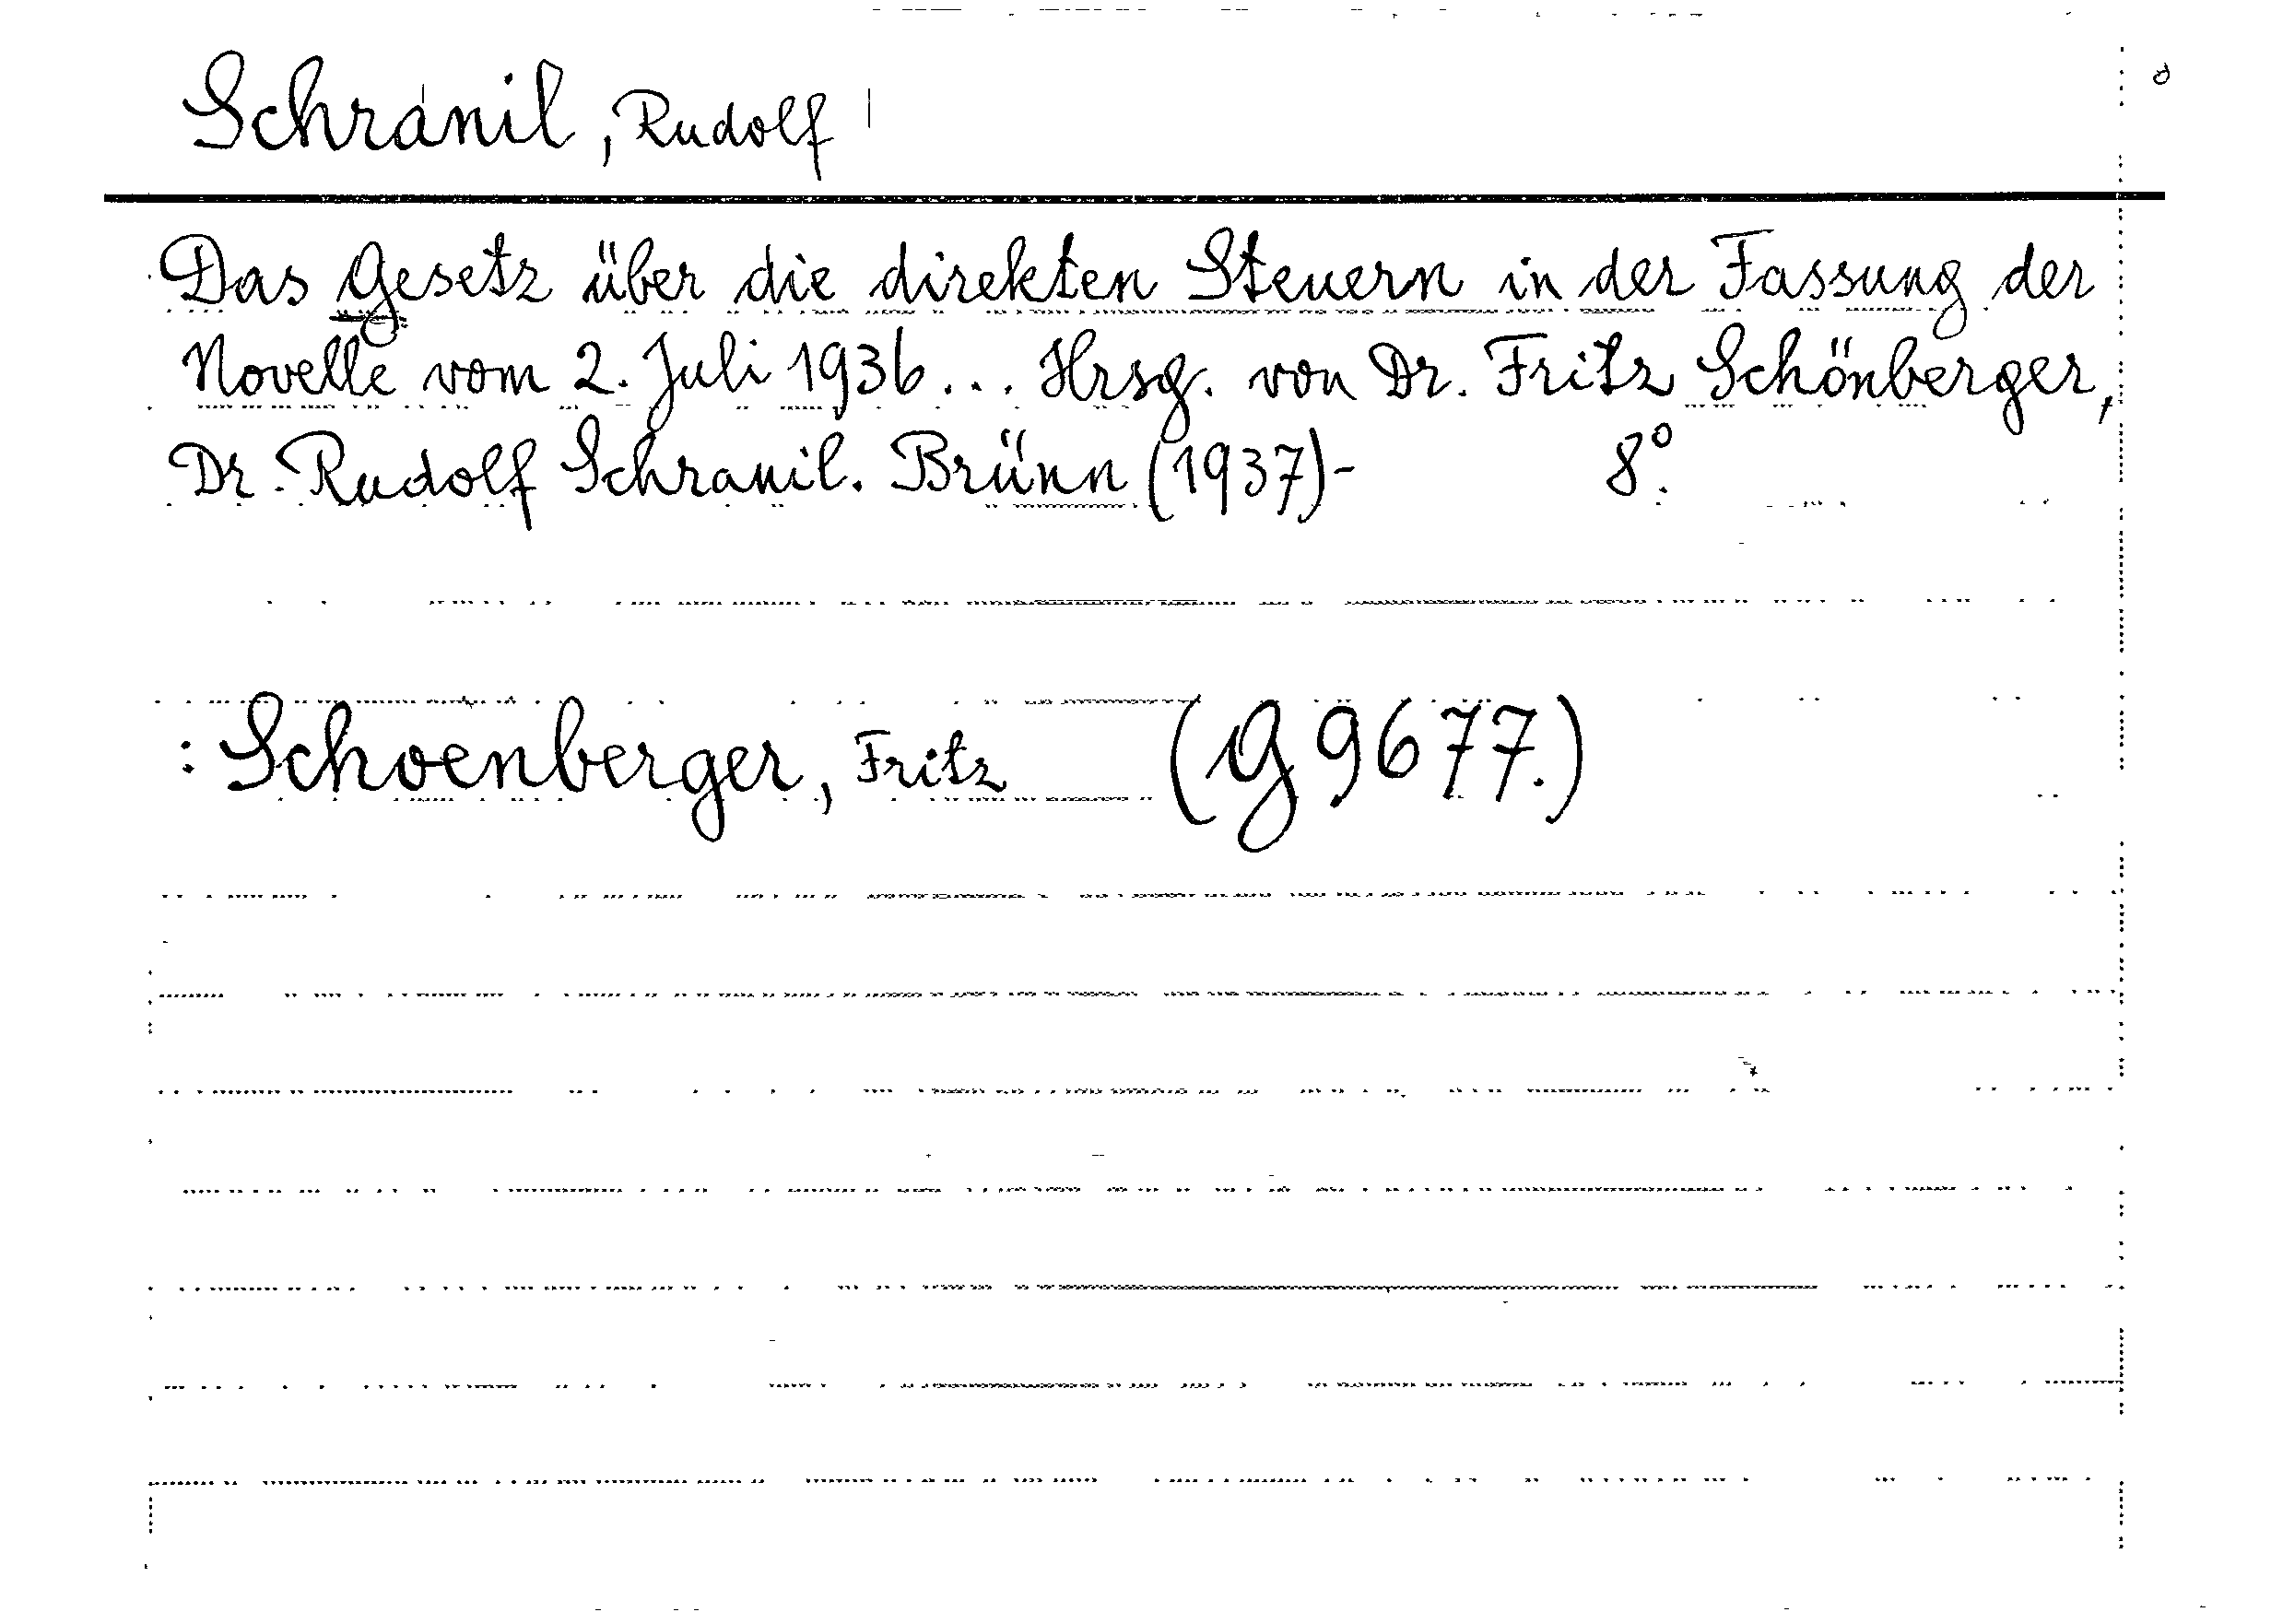 Schranil, Rudolf
Das Gesetz über die direkten Steuern in der Fassung der
Novelle vom 2. Juli 1936... Hrsg. von Dr. Fritz Schönberger,
Dr. Rudolf Schranil. Brünn (1937)- 8°.
: Schoenberger, Fritz (G 9677.)